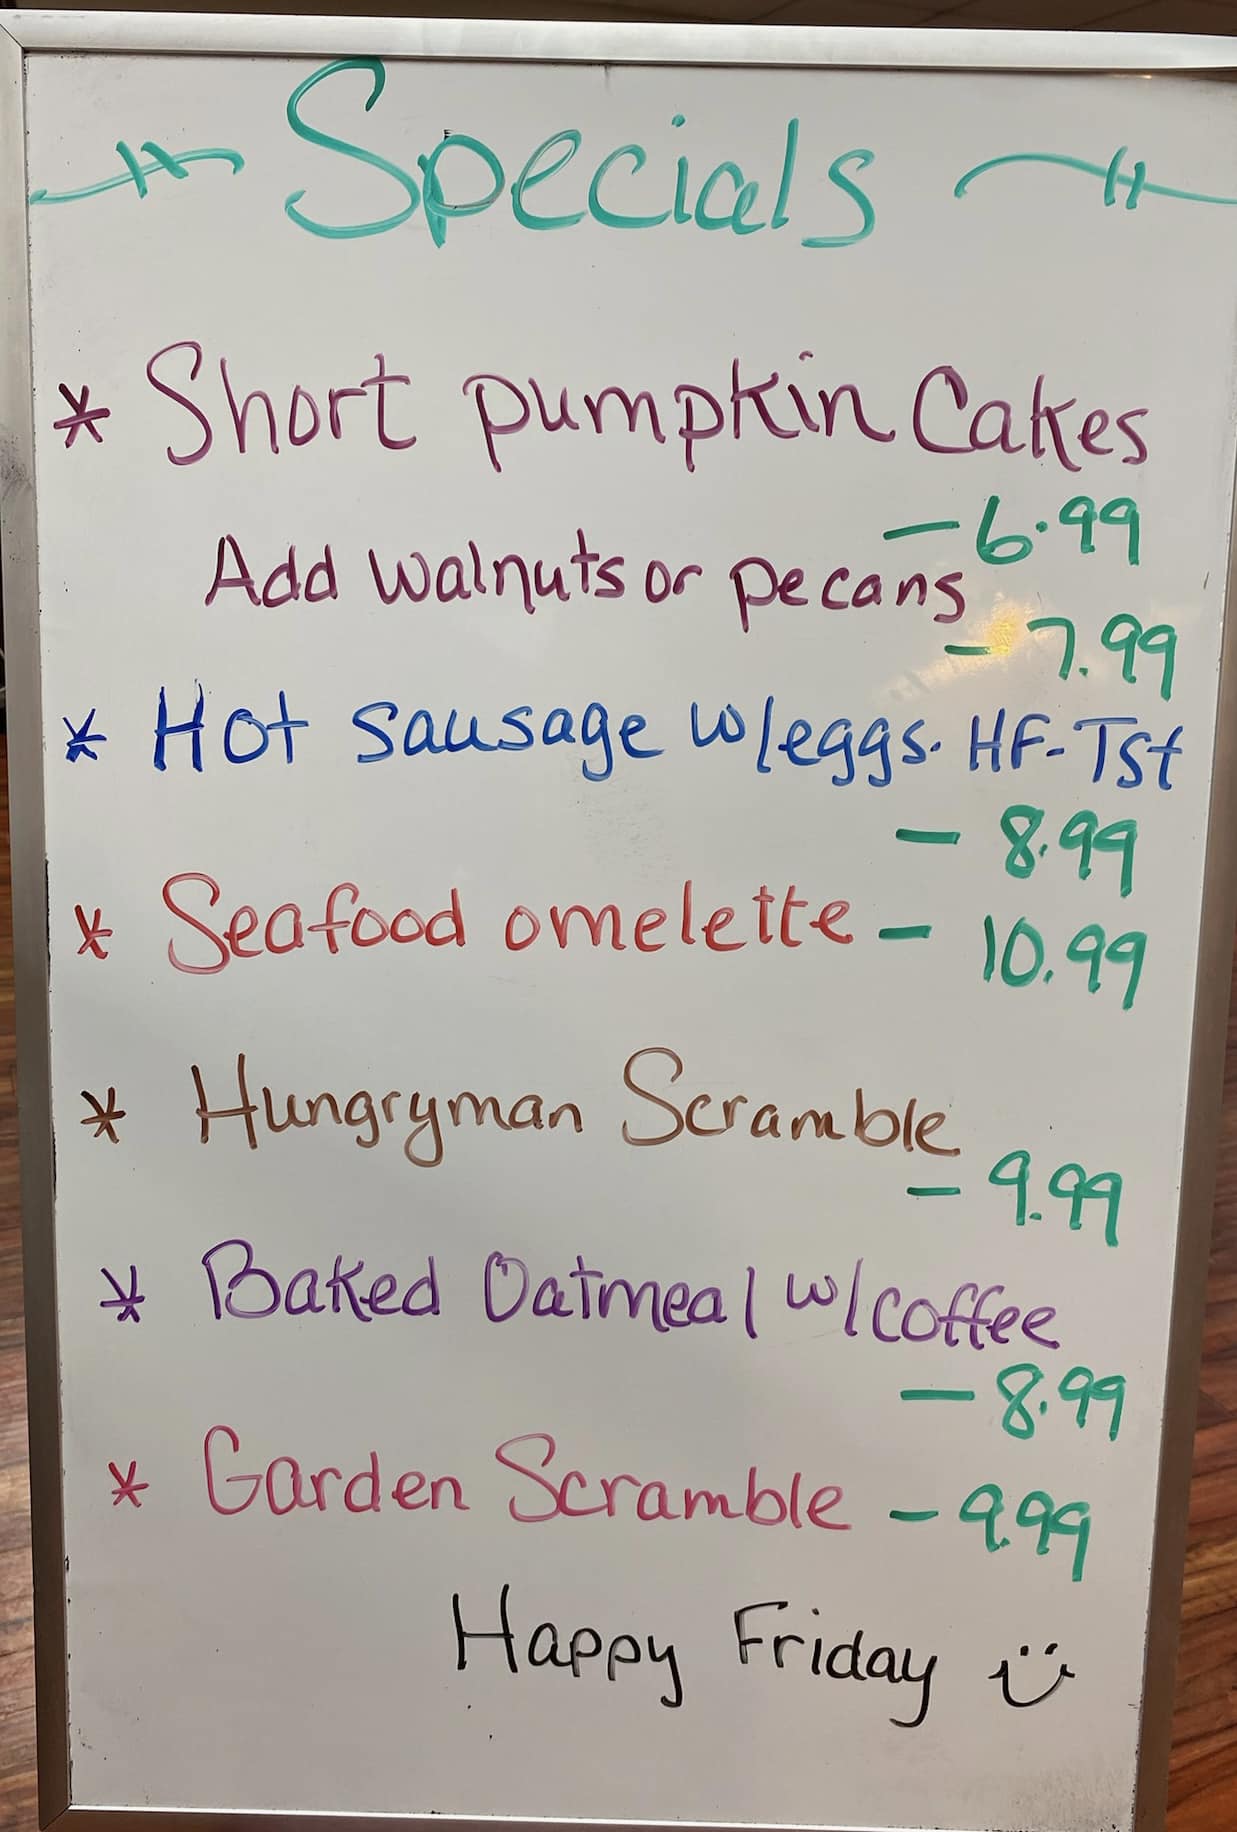 Specials
* Short pumpkin Cakes
- 6.99
Add walnuts or pecans
- 7.99
* Hot sausage w/eggs. HF-Tst
- 8.99
* Seafood omelette - 10.99
* Hungryman Scramble
- 9.99
* Baked Oatmeal w/coffee
- 8.99
* Garden Scramble - 9.99
Happy Friday